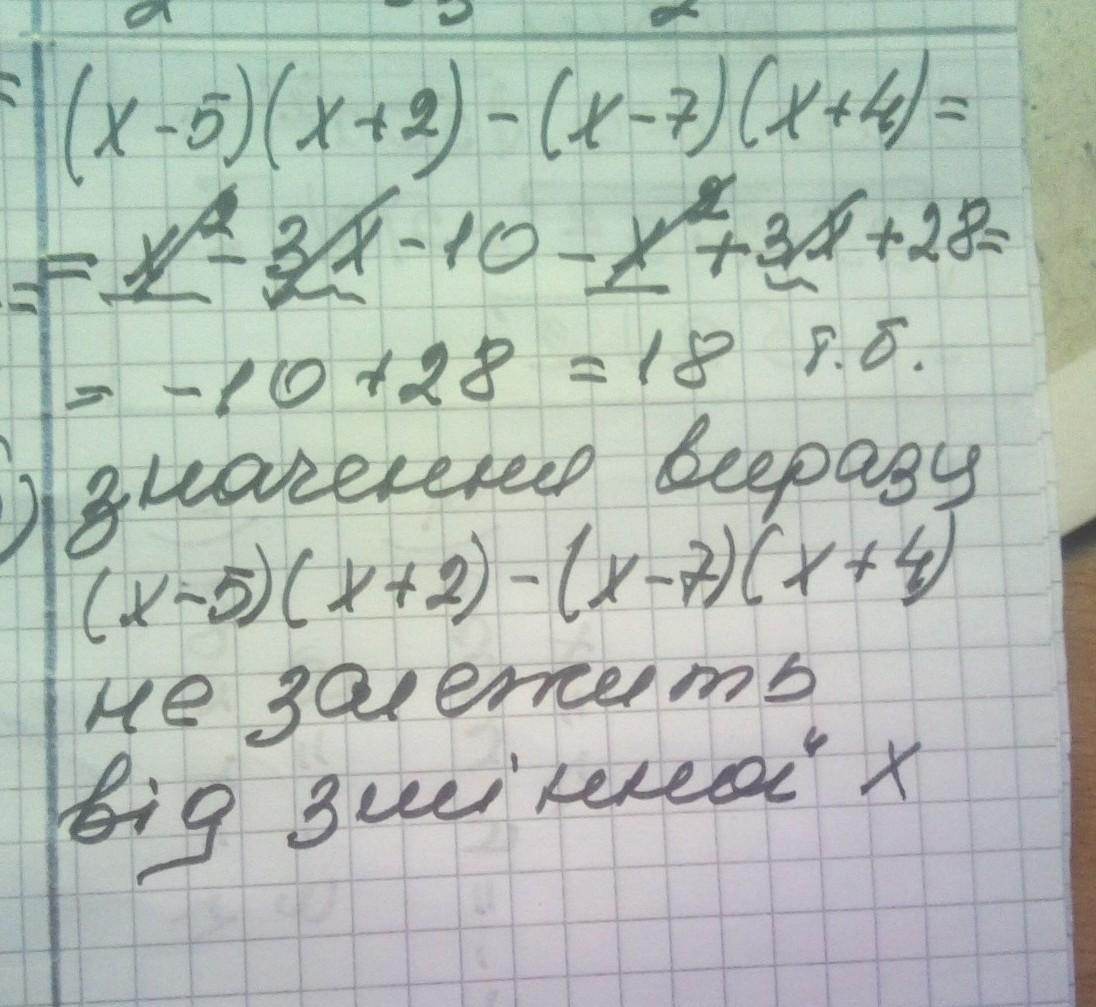 (x-5)(x+2)-(x-7)(x+4)=
= x² - 3x - 10 - x² + 3x + 28 =
= -10 + 28 = 18 т.б.
значення виразу
(x-5)(x+2)-(x-7)(x+4)
не залежить
від змінної x